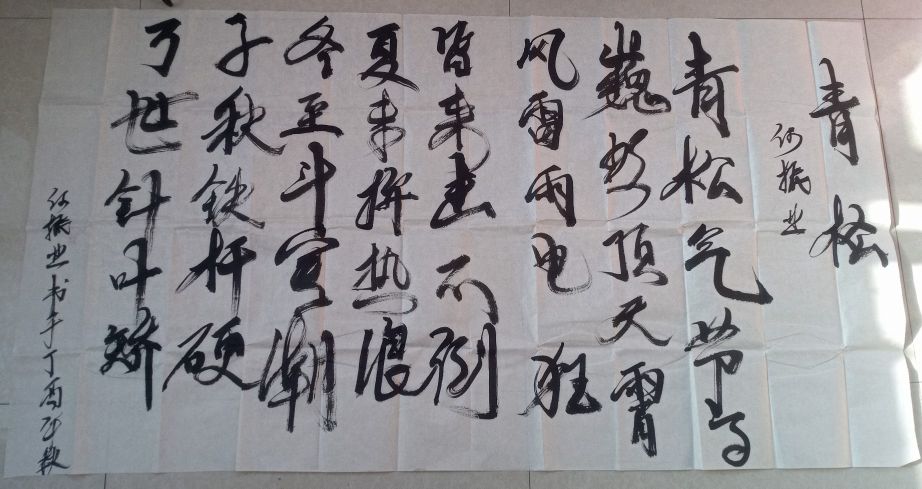 青松
何振业
青松气节高
巍然顶天霄
风雷雨电狂
皆来击不倒
夏来拚热浪
冬至斗寒潮
千秋铁杆硬
万世针叶娇
何振业书于丁酉年秋